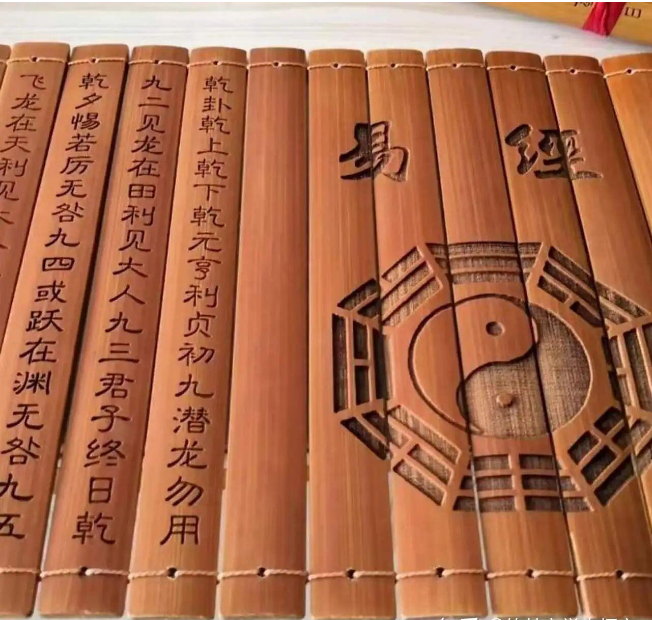 易經
乾卦乾上乾下乾元亨利贞初九潜龙勿用
九二见龙在田利见大人九三君子终日乾
乾夕惕若厉无咎九四或跃在渊无咎九五
飞龙在天利见大人